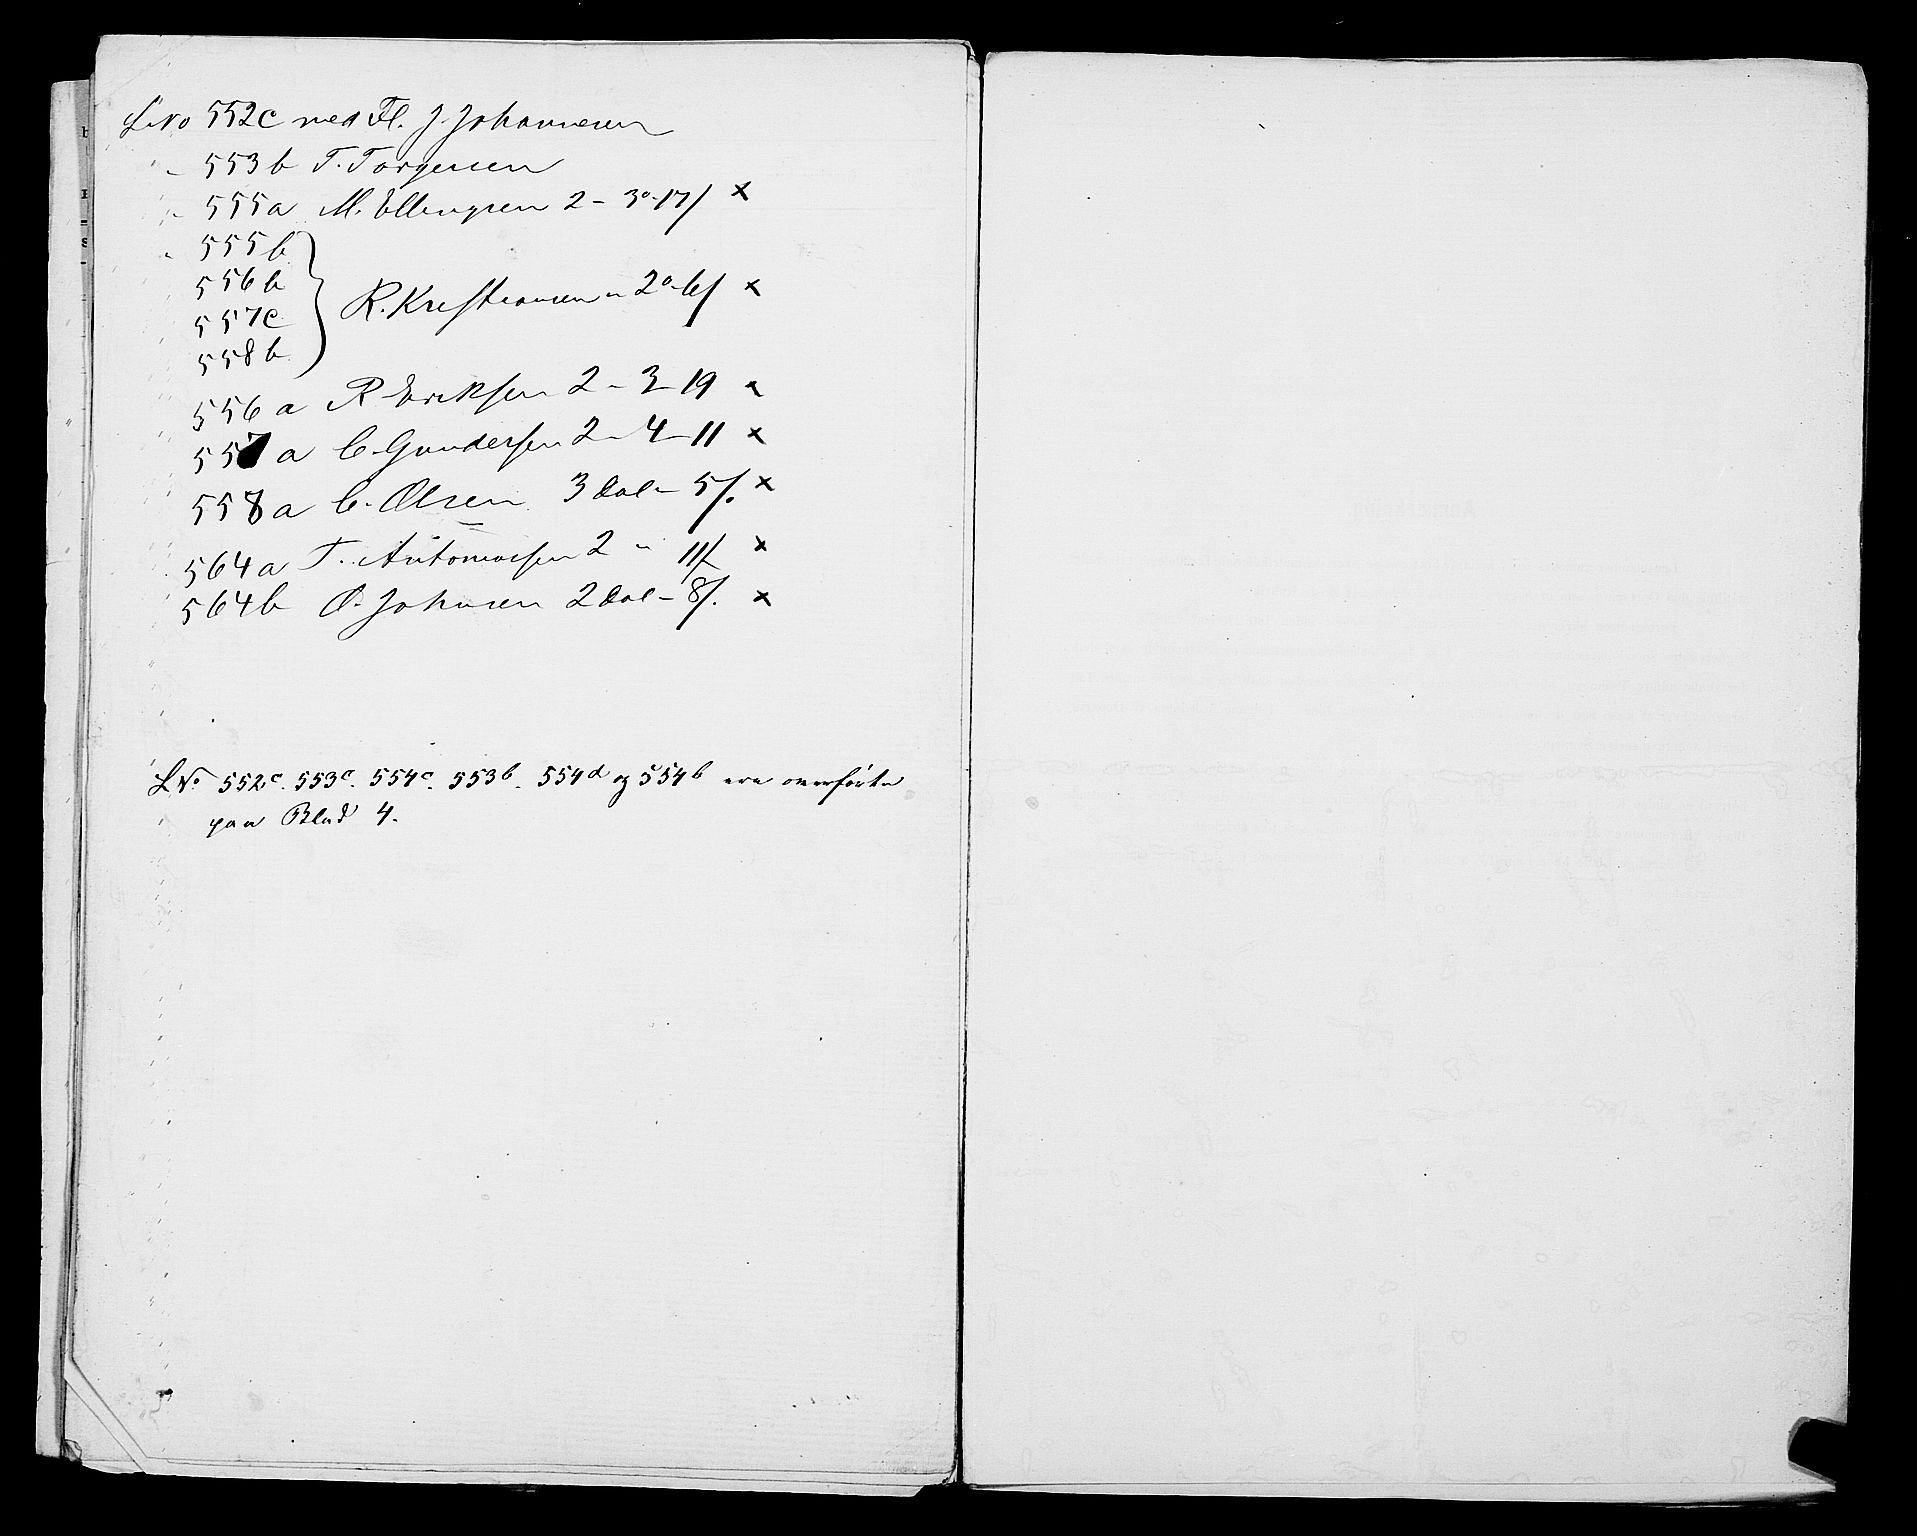 L.No 552c med Fl. J. Johannesen
" 553b T. Torgersen
" 555a M. Ellingsen 2 - 3 o - 17/ x
" 555b
556b
557c R. Kristiansen " 2 o - 6/ x
558b
556a R. Eriksen 2 - 3 - 19 x
557a C. Gundersen 2 - 4 - 11 x
558a C. Olsen 3 Dal - 5/. x
564a T. 2 " 11/ x
564b O. Johnsen 2 Dal - 8/. x
LNo 552c. 553c. 554c. 553b. 554d og 554b ere overførte
paa Blad 4.